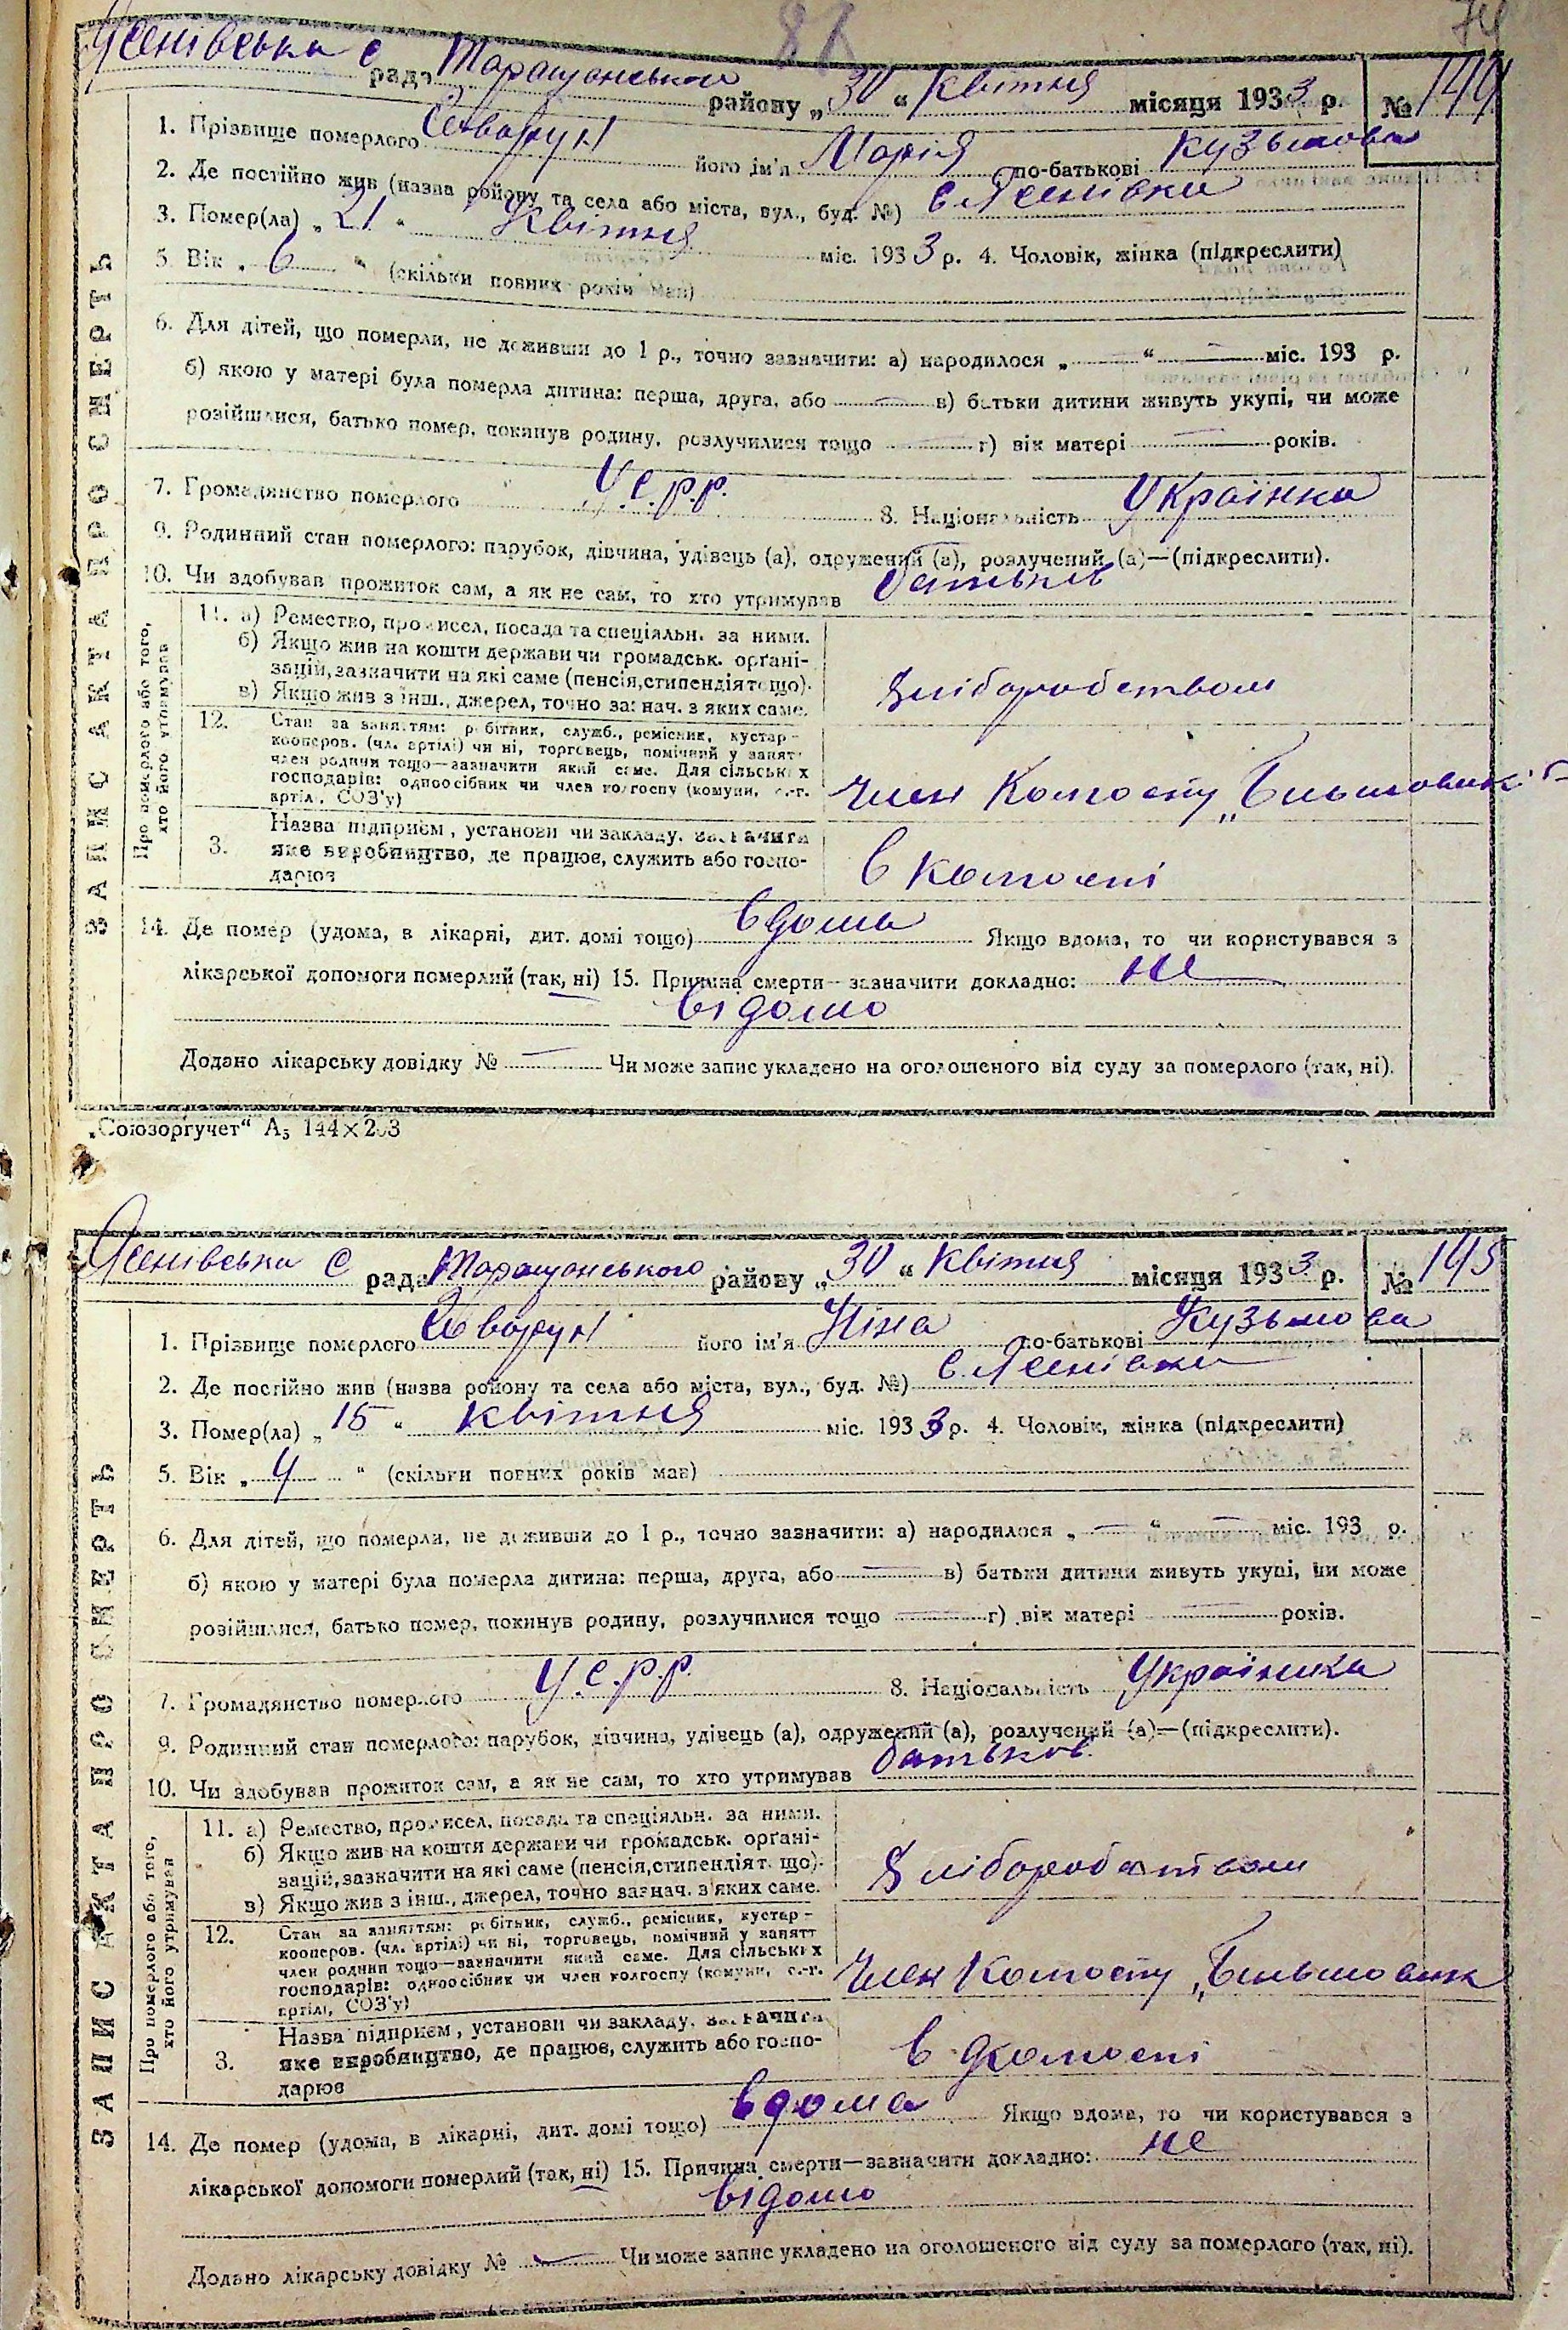 74
Ясенівська с рада Таращанського району „30“ квітня місяця 1933 р. №144
1. Прізвище померлого його ім'я Марія по-батькові Кузьмова
2. Де постійно жив (назва району та села або міста, вул., буд. №) с. Ясенівка
3. Помер(ла) „21“ квітня міс. 1933 р. 4. Чоловік, жінка (підкреслити)
5. Вік „6“ (скільки повних років мав)
6. Для дітей, що померли, не доживши до 1 р., точно зазначити: а) народилося „—“ — міс. 193 р.
б) якою у матері була померла дитина: перша, друга, або — в) батьки дитини живуть укупі, чи може
розійшлися, батько помер, покинув родину, розлучилися тощо — г) вік матері — років.
7. Громадянство померлого У.С.Р.Р. 8. Національність Українка
9. Родинний стан померлого: парубок, дівчина, удівець (а), одружений (а), розлучений (а)—(підкреслити).
10. Чи здобував прожиток сам, а як не сам, то хто утримував батьків
ЗАПИС АКТА ПРО СМЕРТЬ
Про померлого або того, хто його утримував
11. а) Ремество, промисел, посада та спеціяльн. за ними.
б) Якщо жив на кошти держави чи громадськ. орґані-
зацій, зазначити на які саме (пенсія, стипендія тощо).
в) Якщо жив з інш., джерел, точно зазнач. з яких саме.
хліборобством
12. Стан за заняттям: робітник, служб., ремісник, кустар-
кооперов. (чл. артілі) чи ні, торговець, помічний у занятт
член родини тощо—зазначити який саме. Для сільських
господарів: одноосібник чи член колгоспу (комуни, с.-г.
артілі, СОЗ'у)
член Колгоспу „Більшовик“
3. Назва підприєм, установи чи закладу, зазначити
яке виробництво, де працює, служить або госпо-
дарює
в Колгоспі
14. Де помер (удома, в лікарні, дит. домі тощо) вдома Якщо вдома, то чи користувався з
лікарської допомоги померлий (так, ні) 15. Причина смерти—зазначити докладно: не
відомо
Додано лікарську довідку № — Чи може запис укладено на оголошеного від суду за померлого (так, ні).
„Союзоргучет“ А5 144×203
Ясенівська с рада Таращанського району „30“ квітня місяця 1933 р. №145
1. Прізвище померлого його ім'я Ніна по-батькові Кузьмова
2. Де постійно жив (назва району та села або міста, вул., буд. №) с. Ясенівка
3. Помер(ла) „15“ квітня міс. 1933 р. 4. Чоловік, жінка (підкреслити)
5. Вік „4“ (скільки повних років мав)
6. Для дітей, що померли, не доживши до 1 р., точно зазначити: а) народилося „—“ — міс. 193 р.
б) якою у матері була померла дитина: перша, друга, або — в) батьки дитини живуть укупі, чи може
розійшлися, батько помер, покинув родину, розлучилися тощо — г) вік матері — років.
7. Громадянство померлого У.С.Р.Р. 8. Національність Українка
9. Родинний стан померлого: парубок, дівчина, удівець (а), одружений (а), розлучений (а)—(підкреслити).
10. Чи здобував прожиток сам, а як не сам, то хто утримував батьков
ЗАПИС АКТА ПРО СМЕРТЬ
Про померлого або того, хто його утримував
11. а) Ремество, промисел, посада та спеціяльн. за ними.
б) Якщо жив на кошти держави чи громадськ. орґані-
зацій, зазначити на які саме (пенсія, стипендія тощо).
в) Якщо жив з інш., джерел, точно зазнач. з яких саме.
хліборобством
12. Стан за заняттям: робітник, служб., ремісник, кустар-
кооперов. (чл. артілі) чи ні, торговець, помічний у занятт
член родини тощо—зазначити який саме. Для сільських
господарів: одноосібник чи член колгоспу (комуни, с.-г.
артілі, СОЗ'у)
член Колгоспу „Більшовик
3. Назва підприєм, установи чи закладу, зазначити
яке виробництво, де працює, служить або госпо-
дарює
в Колгоспі
14. Де помер (удома, в лікарні, дит. домі тощо) вдома Якщо вдома, то чи користувався з
лікарської допомоги померлий (так, ні) 15. Причина смерти—зазначити докладно: не
відомо
Додано лікарську довідку № — Чи може запис укладено на оголошеного від суду за померлого (так, ні).